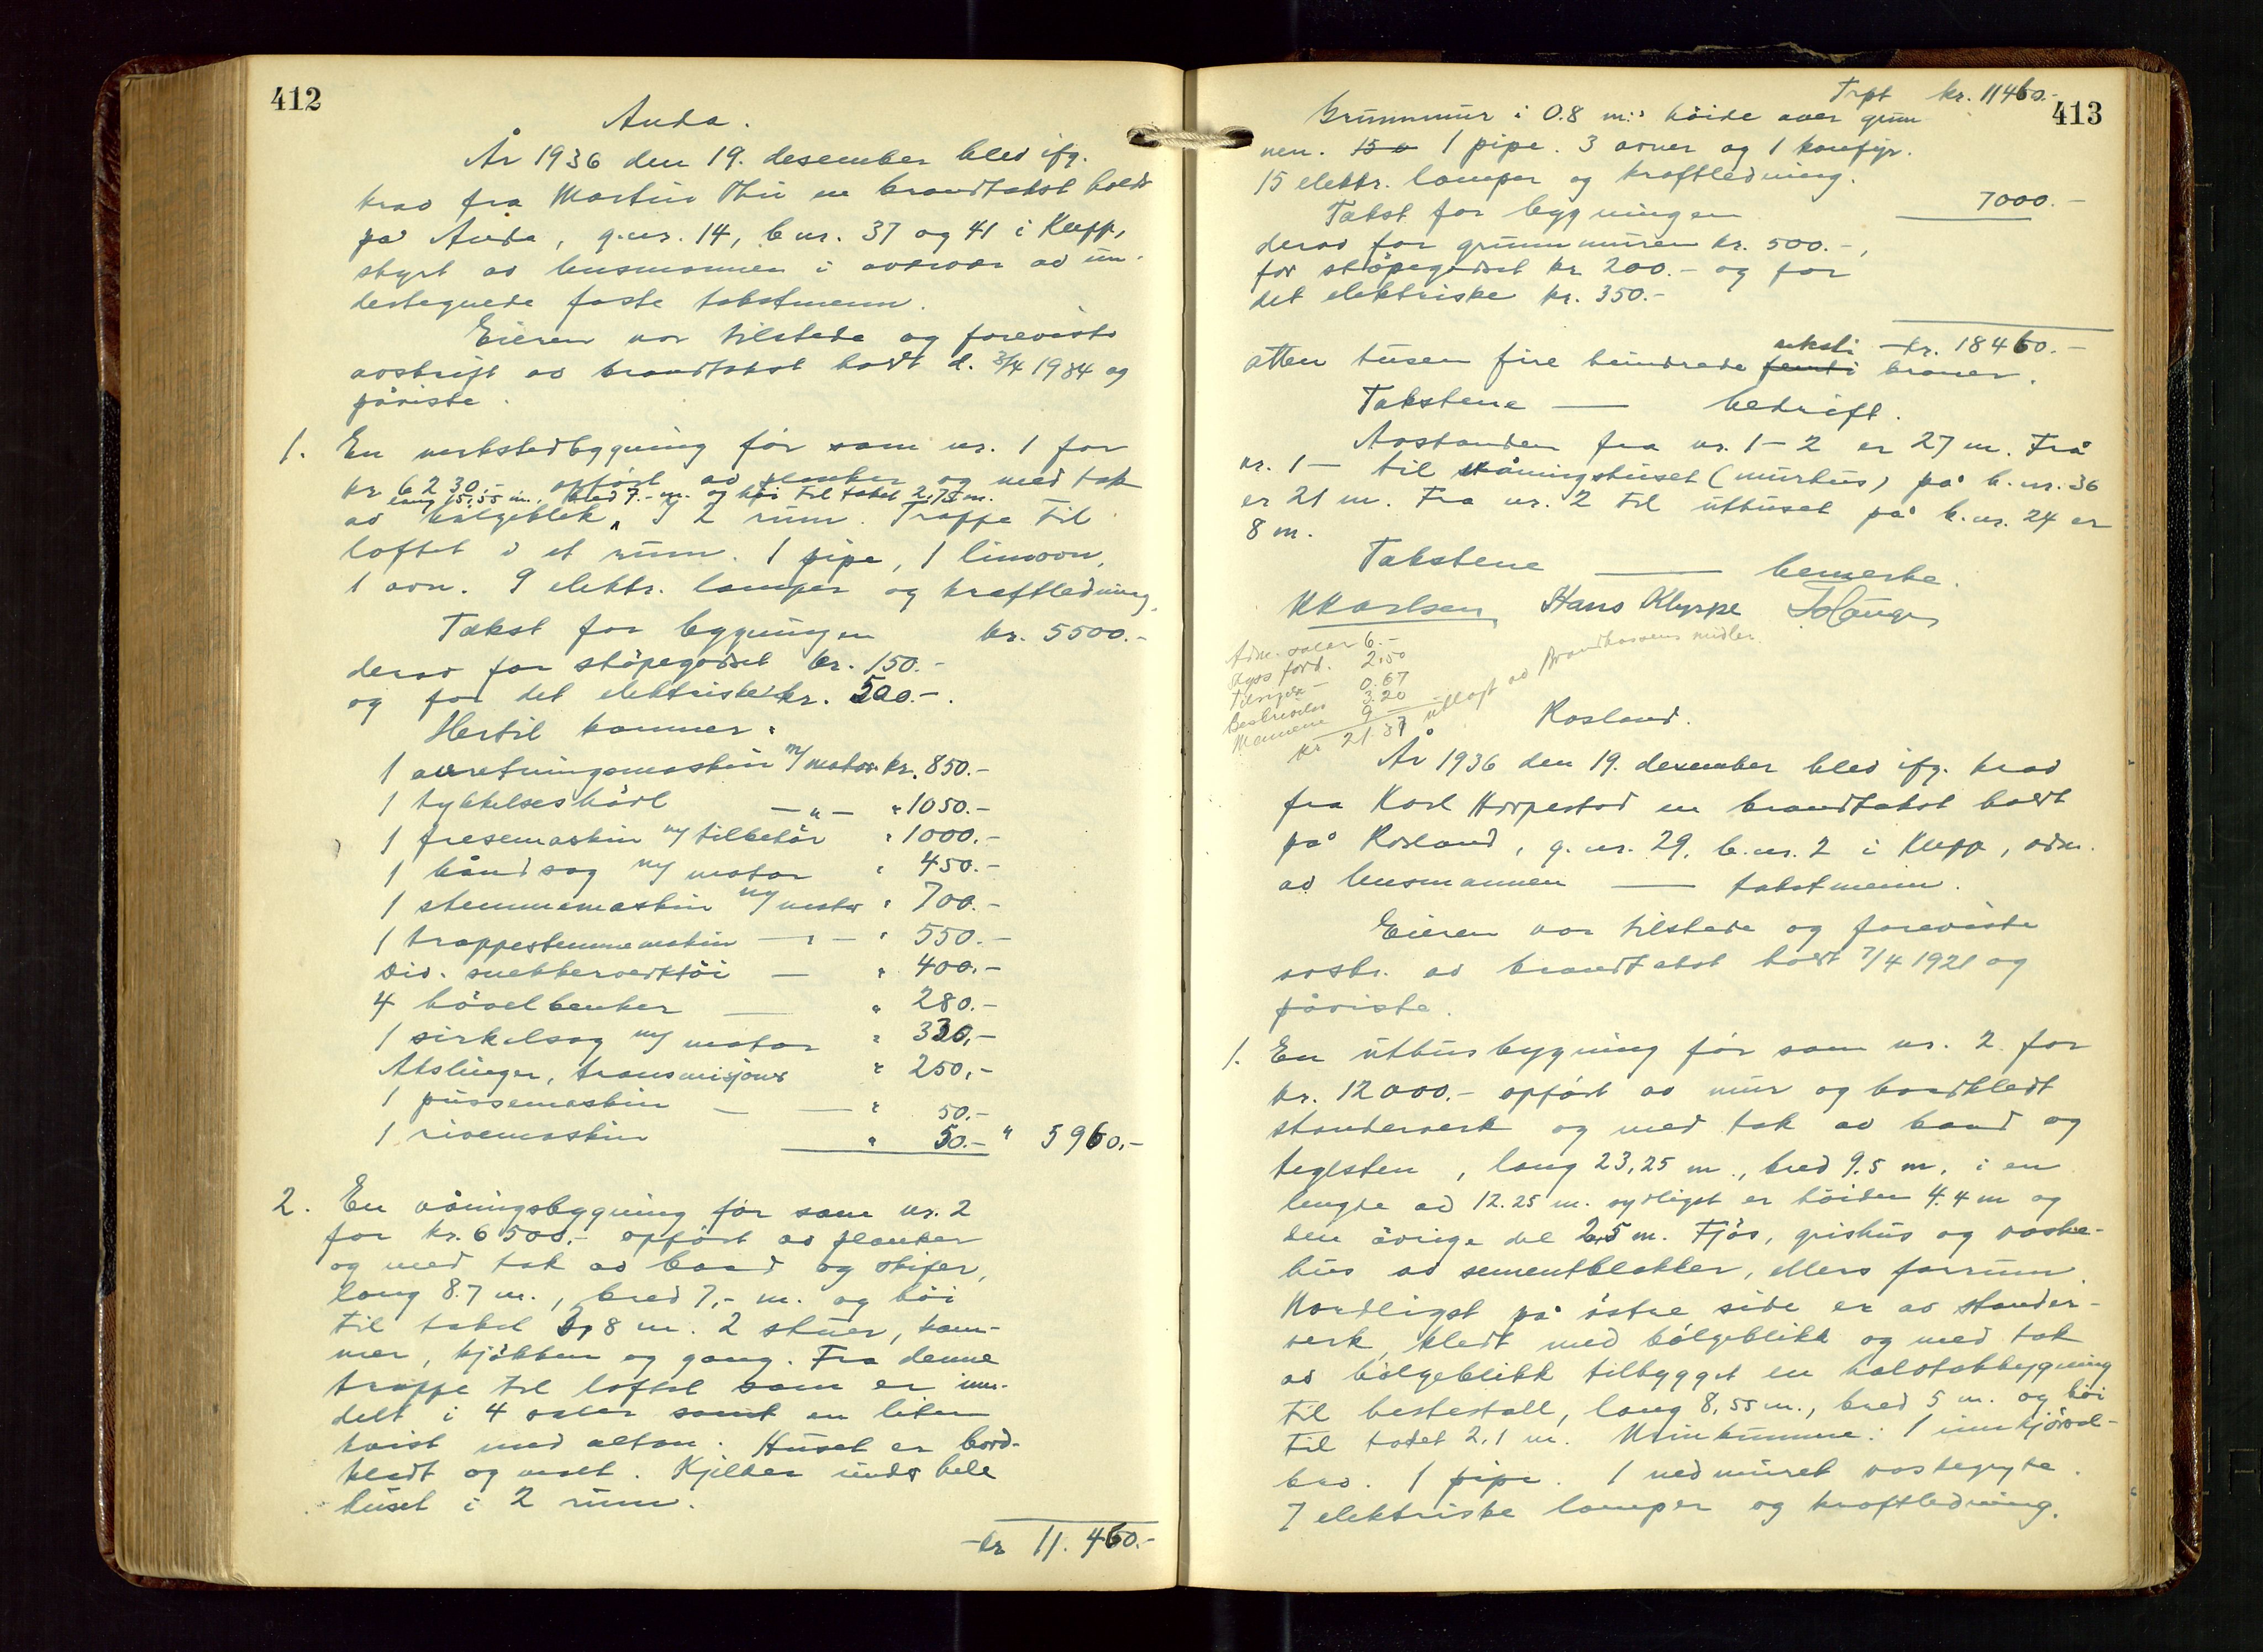 412
Anda.
År 1936 den 19. desember blev ifg.
krav fra Martin Thu en brandtakst holdt
på Anda, g.nr. 14, b.nr. 37 og 41 i Klepp,
styrt av lensmannen i overvær av un-
dertegnede faste takstmenn.
Eieren var tilstede og foreviste
avskrift av brandtakst holdt d. 3/4 1934 og
påviste.
1. En verkstedbygning før som nr. 1 for
kr 6230.- opført av planker og med tak
lang 15,55 m., bred 7.- m. og høi til taket 2,75 m.
av bølgeblek, i 2 rum. Trappe til
loftet i et rum. 1 pipe, 1 limovn,
1 ovn. 9 elektr. lamper og kraftledning.
Takst for bygningen kr. 5500.-
derav for støpegodset kr. 150.-
og for det elektriske kr. 500.-.
Hertil kommer:
1 avretningsmaskin m/ motor kr. 850.-
1 tykkelseshøvl -"- " 1050.-
1 fresemaskin m/ tilbehør " 1000.-
1 båndsag m/ motor " 450.-
1 stemmemaskin m/ motor " 700.-
1 trappestemmemaskin -"- " 550.-
Div. snekkerverktøi - " 400.-
4 høvelbenker - " 280.-
1 sirkelsag m/ motor " 330,-
Akslinger, transmisjoner " 250,-
1 pussemaskin - - " 50.-
1 rivemaskin " 50.- " 5960,-
2. En våningsbygning før som nr. 2
for kr. 6500.- opført av planker
og med tak av bord og skifer,
lang 8.7 m., bred 7,- m. og høi
til taket 3,8 m. 2 stuer, kam-
mer, kjøkken og gang. Fra denne
trappe til loftet som er inn-
delt i 4 saler samt en liten
kvist med altan. Huset er bord-
kledt og malt. Kjelder under hele
huset i 2 rum.
kr 11.460.-
413
Trpt kr. 11460.-
Grunnmur i 0.8 m:s høide over grun
nen. 15 e 1 pipe. 3 ovner og 1 komfyr.
15 elektr. lamper og kraftledning.
Takst for bygningen 7000.-
derav for grunnmuren kr. 500.-,
for støpegodset kr 200.- og for
det elektriske kr. 350.-
kr. 18460.-
seksti
atten tusen fire hundrede femti kroner.
Takstene — bedrift.
Avstanden fra nr. 1 - 2 er 27 m. Frå
nr. 1 - til våningshuset (murhus) på b.nr. 36
er 21 m. Fra nr. 2 til uthuset på b.nr. 24 er
8 m.
Takstene — bemerke.
K Karlsen Hans Kleppe T Hauge
Adm. salær 6.-
Skyss ford. 2,50
Tilsyn - 0.67
Beskrivelse 3.20
Mennene 9 -
kr 21.37 utlagt av Brandkassens midler.
Rosland.
År 1936 den 19. desember blev ifg. krav
fra Karl Horpestad en brandtakst holdt
på Rosland, g.nr. 29, b.nr. 2 i Klepp, adm.
av lensmannen — takstmenn.
Eieren var tilstede og foreviste
avskr. av brandtakst holdt 7/4 1921 og
påviste.
1. En uthusbygning før som nr. 2 for
kr. 12000.- opført av mur og bordkledt
standerverk og med tak av bord og
teglsten, lang 23,25 m., bred 9.5 m, i en
lengde av 12.25 m. sydligst er høiden 4.4 m og
den øvrige del 2,5 m. Fjøs, grishus og vaske-
hus av sementblokker, ellers forrum.
Nordligst på østre side er av stander-
verk, kledt med bølgeblikk og med tak
av bølgeblikk tilbygget en halvtakbygning
til hestestall, lang 8,55 m., bred 5 m. og høi
til taket 2,1 m. Urinkumme. 1 innkjørsel-
bro. 1 pipe. 1 nedmuret vaskegryte.
7 elektriske lamper og kraftledning.